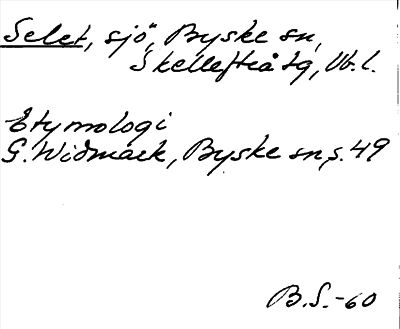 Selet, sjö, Byske sn,
Skellefteå tg, Vb. l.
Etymologi
G. Widmark, Byske sn, s. 49
B.S. -60